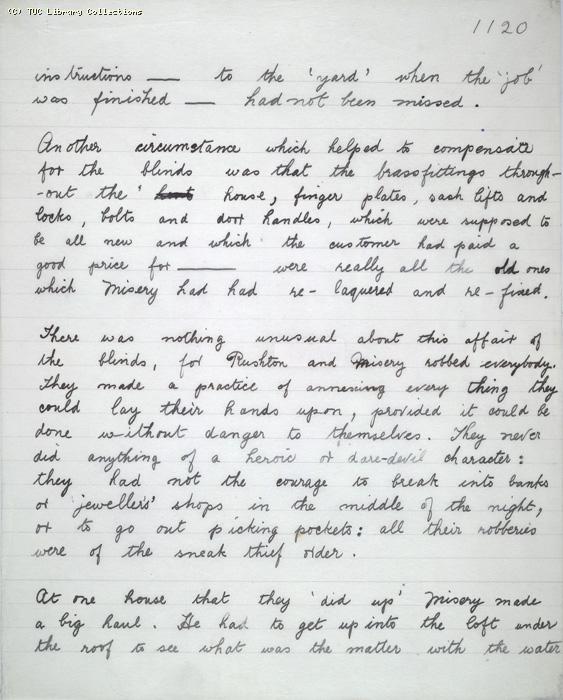 (C) TUC Library Collections
1120
instructions — to the 'yard' when the 'job'
was finished — had not been missed.
Another circumstance which helped to compensate
for the blinds was that the brassfittings through-
-out the ' house, finger plates, sash lifts and
locks, bolts and door handles, which were supposed to
be all new and which the customer had paid a
good price for — were really all the old ones
which Misery had had re-laquered and re-fixed.
There was nothing unusual about this affair of
the blinds, for Rushton and Misery robbed everybody.
They made a practice of annexing every thing they
could lay their hands upon, provided it could be
done without danger to themselves. They never
did anything of a heroic or dare-devil character:
they had not the courage to break into banks
or jewellers' shops in the middle of the night,
or to go out picking pockets: all their robberies
were of the sneak thief order.
At one house that they 'did up' Misery made
a big haul. He had to get up into the loft under
the roof to see what was the matter with the water